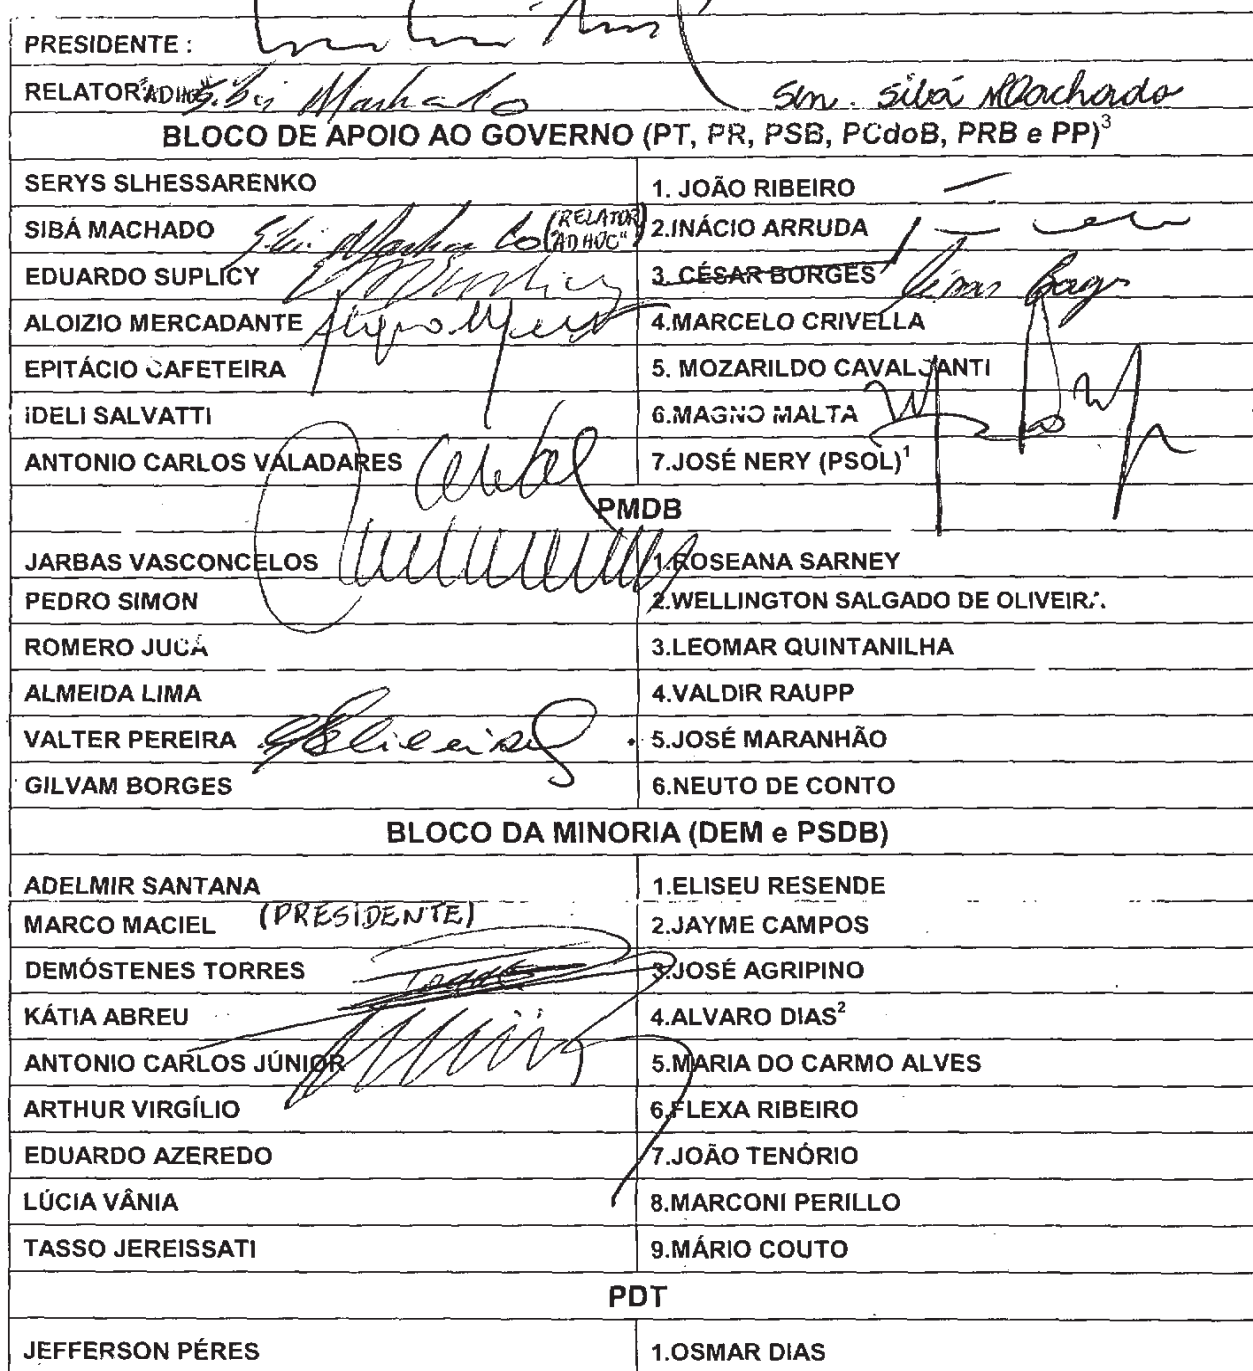 PRESIDENTE :
RELATOR "ADHOC" Sibá Machado Sen. Sibá Machado
BLOCO DE APOIO AO GOVERNO (PT, PR, PSB, PCdoB, PRB e PP)³
SERYS SLHESSARENKO 1. JOÃO RIBEIRO
SIBÁ MACHADO Sibá Machado (RELATOR "AD HOC") 2.INÁCIO ARRUDA
EDUARDO SUPLICY 3. CÉSAR BORGES César Borges
ALOIZIO MERCADANTE 4.MARCELO CRIVELLA
EPITÁCIO CAFETEIRA 5. MOZARILDO CAVALCANTI
IDELI SALVATTI 6.MAGNO MALTA
ANTONIO CARLOS VALADARES 7.JOSÉ NERY (PSOL)¹
PMDB
JARBAS VASCONCELOS 1.ROSEANA SARNEY
PEDRO SIMON 2.WELLINGTON SALGADO DE OLIVEIRA
ROMERO JUCÁ 3.LEOMAR QUINTANILHA
ALMEIDA LIMA 4.VALDIR RAUPP
VALTER PEREIRA 5.JOSÉ MARANHÃO
GILVAM BORGES 6.NEUTO DE CONTO
BLOCO DA MINORIA (DEM e PSDB)
ADELMIR SANTANA 1.ELISEU RESENDE
MARCO MACIEL (PRESIDENTE) 2.JAYME CAMPOS
DEMÓSTENES TORRES 3.JOSÉ AGRIPINO
KÁTIA ABREU 4.ALVARO DIAS²
ANTONIO CARLOS JÚNIOR 5.MARIA DO CARMO ALVES
ARTHUR VIRGÍLIO 6.FLEXA RIBEIRO
EDUARDO AZEREDO 7.JOÃO TENÓRIO
LÚCIA VÂNIA 8.MARCONI PERILLO
TASSO JEREISSATI 9.MÁRIO COUTO
PDT
JEFFERSON PÉRES 1.OSMAR DIAS